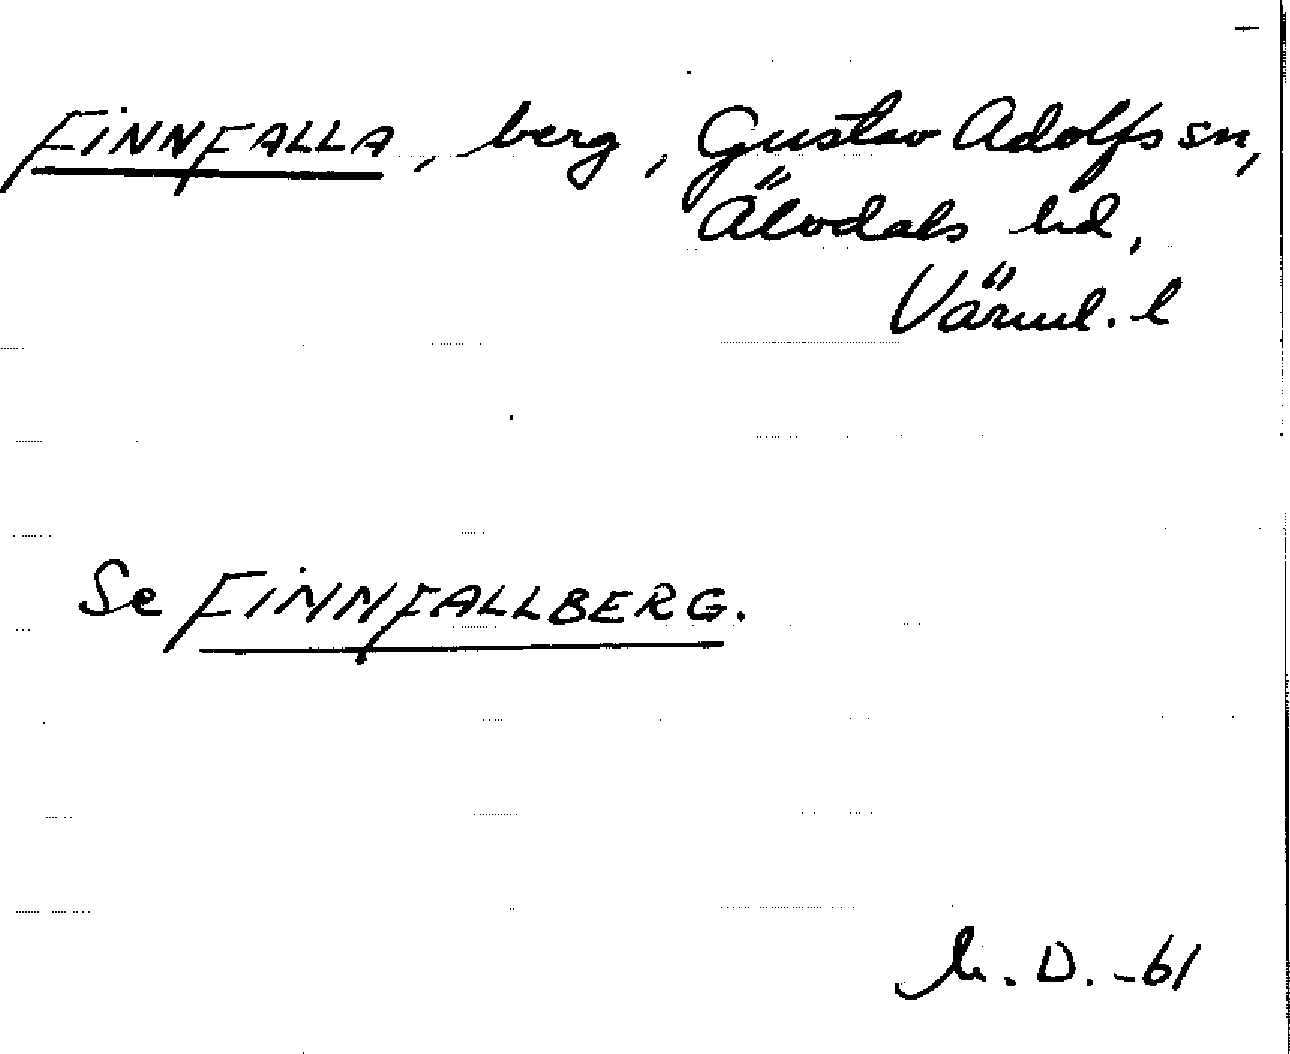 FINNFALLA, berg, Gustav Adolfs sn,
Älvdals hd,
Värml. l
Se FINNFALLBERG.
D. -61